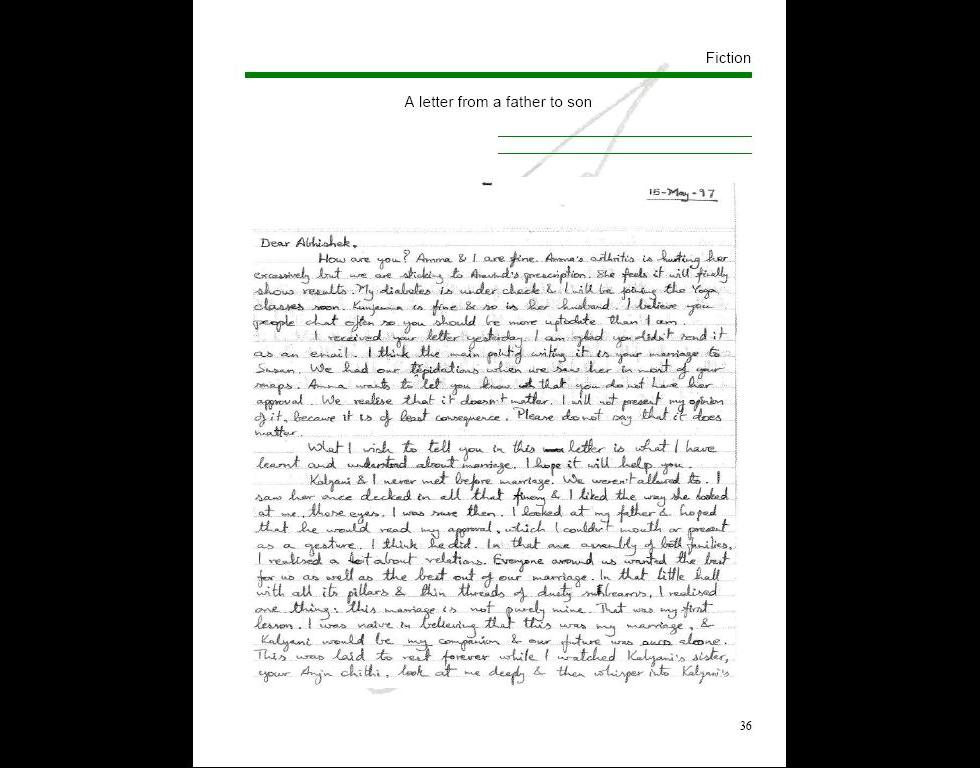 Fiction
A letter from a father to son
15-May-97
Dear Abhishek,
How are you? Amma & I are fine. Amma's athritis is hurting her
excessively but we are sticking to Aravind's prescription. She feels it will finally
show results. My diabetes is under check & I will be joining the Yoga
classes soon. Kunjamma is fine & so is her husband. I believe you
people chat often so you should be more uptodate than I am.
I received your letter yesterday. I am glad you didn't send it
as an email. I think the main point of writing it is your marriage to
Susan. We had our tepidations when we saw her in most of your
snaps. Amma wants to let you know that you do not have her
approval. We realise that it doesn't matter. I will not present my opinion
of it, because it is of least consequence. Please do not say that it does
matter.
What I wish to tell you in this letter is what I have
learnt and understood about marriage. I hope it will help you.
Kalyani & I never met before marriage. We weren't allowed to. I
saw her once decked in all that finery & I liked the way she looked
at me, those eyes. I was sure then. I looked at my father & hoped
that he would read my approval, which I couldn't mouth or present
as a gesture. I think he did. In that one assembly of both families,
I realised a lot about relations. Everyone around us wanted the best
for us as well as the best out of our marriage. In that little hall
with all its pillars & thin threads of dusty sunbeams, I realised
one thing: this marriage is not purely mine. That was my first
lesson. I was naive in believing that this was my marriage, &
Kalyani would be my companion & our future was ours alone.
This was laid to rest forever while I watched Kalyani's sister,
your Anju chithi, look at me deeply & then whisper into Kalyani's
36